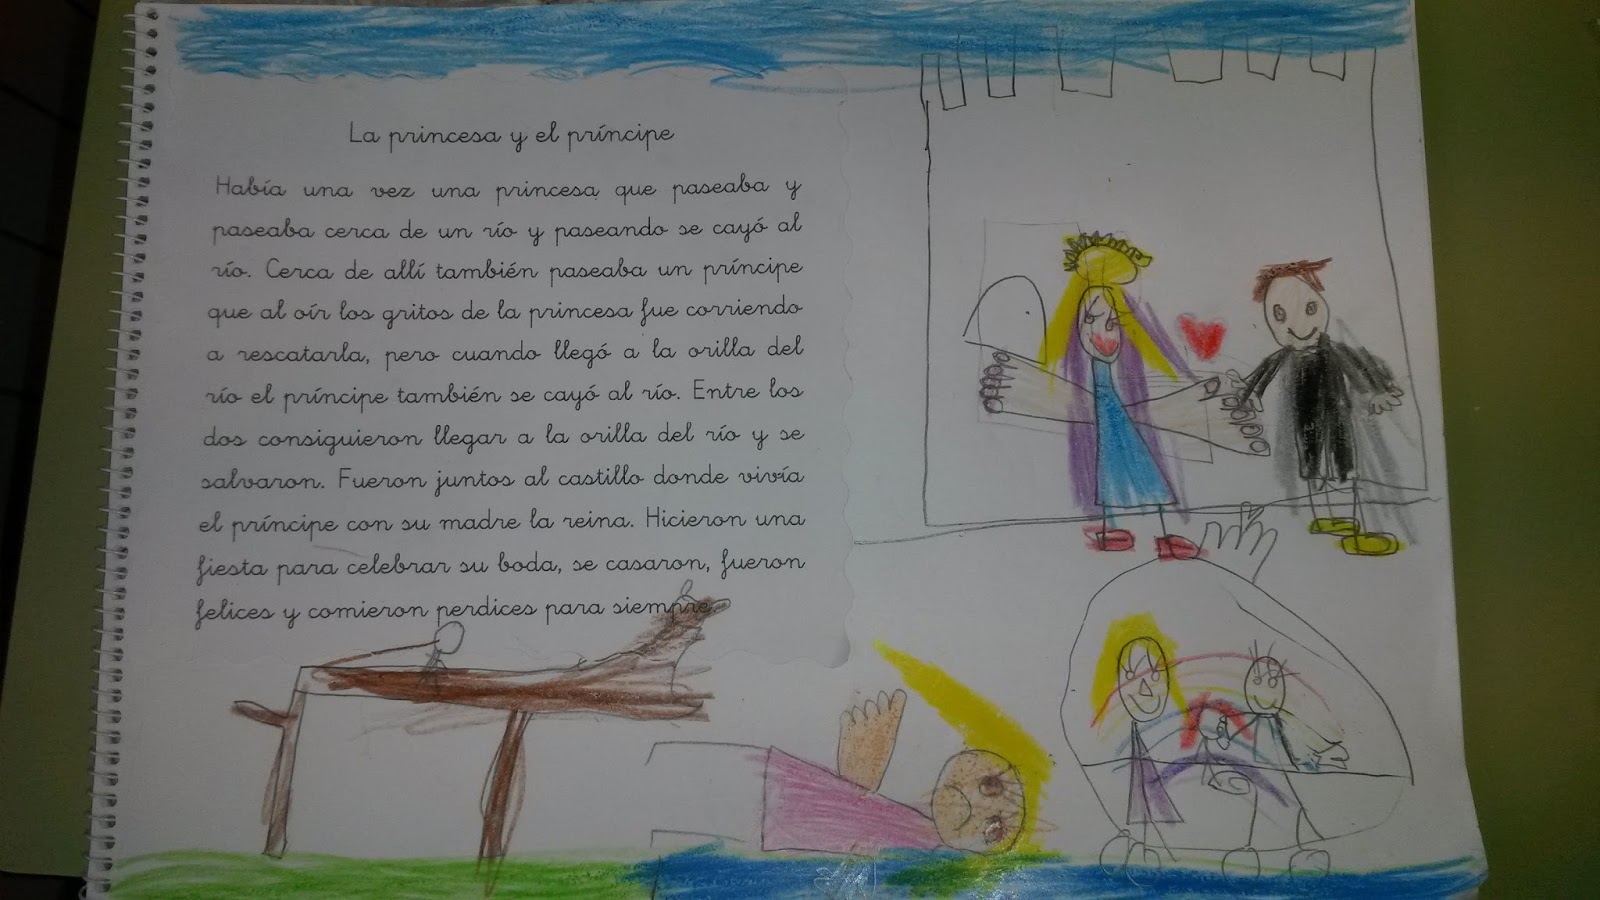 La princesa y el príncipe
Había una vez una princesa que paseaba y
paseaba cerca de un río y paseando se cayó al
río. Cerca de allí también paseaba un príncipe
que al oír los gritos de la princesa fue corriendo
a rescatarla, pero cuando llegó a la orilla del
río el príncipe también se cayó al río. Entre los
dos consiguieron llegar a la orilla del río y se
salvaron. Fueron juntos al castillo donde vivía
el príncipe con su madre la reina. Hicieron una
fiesta para celebrar su boda, se casaron, fueron
felices y comieron perdices para siempre.